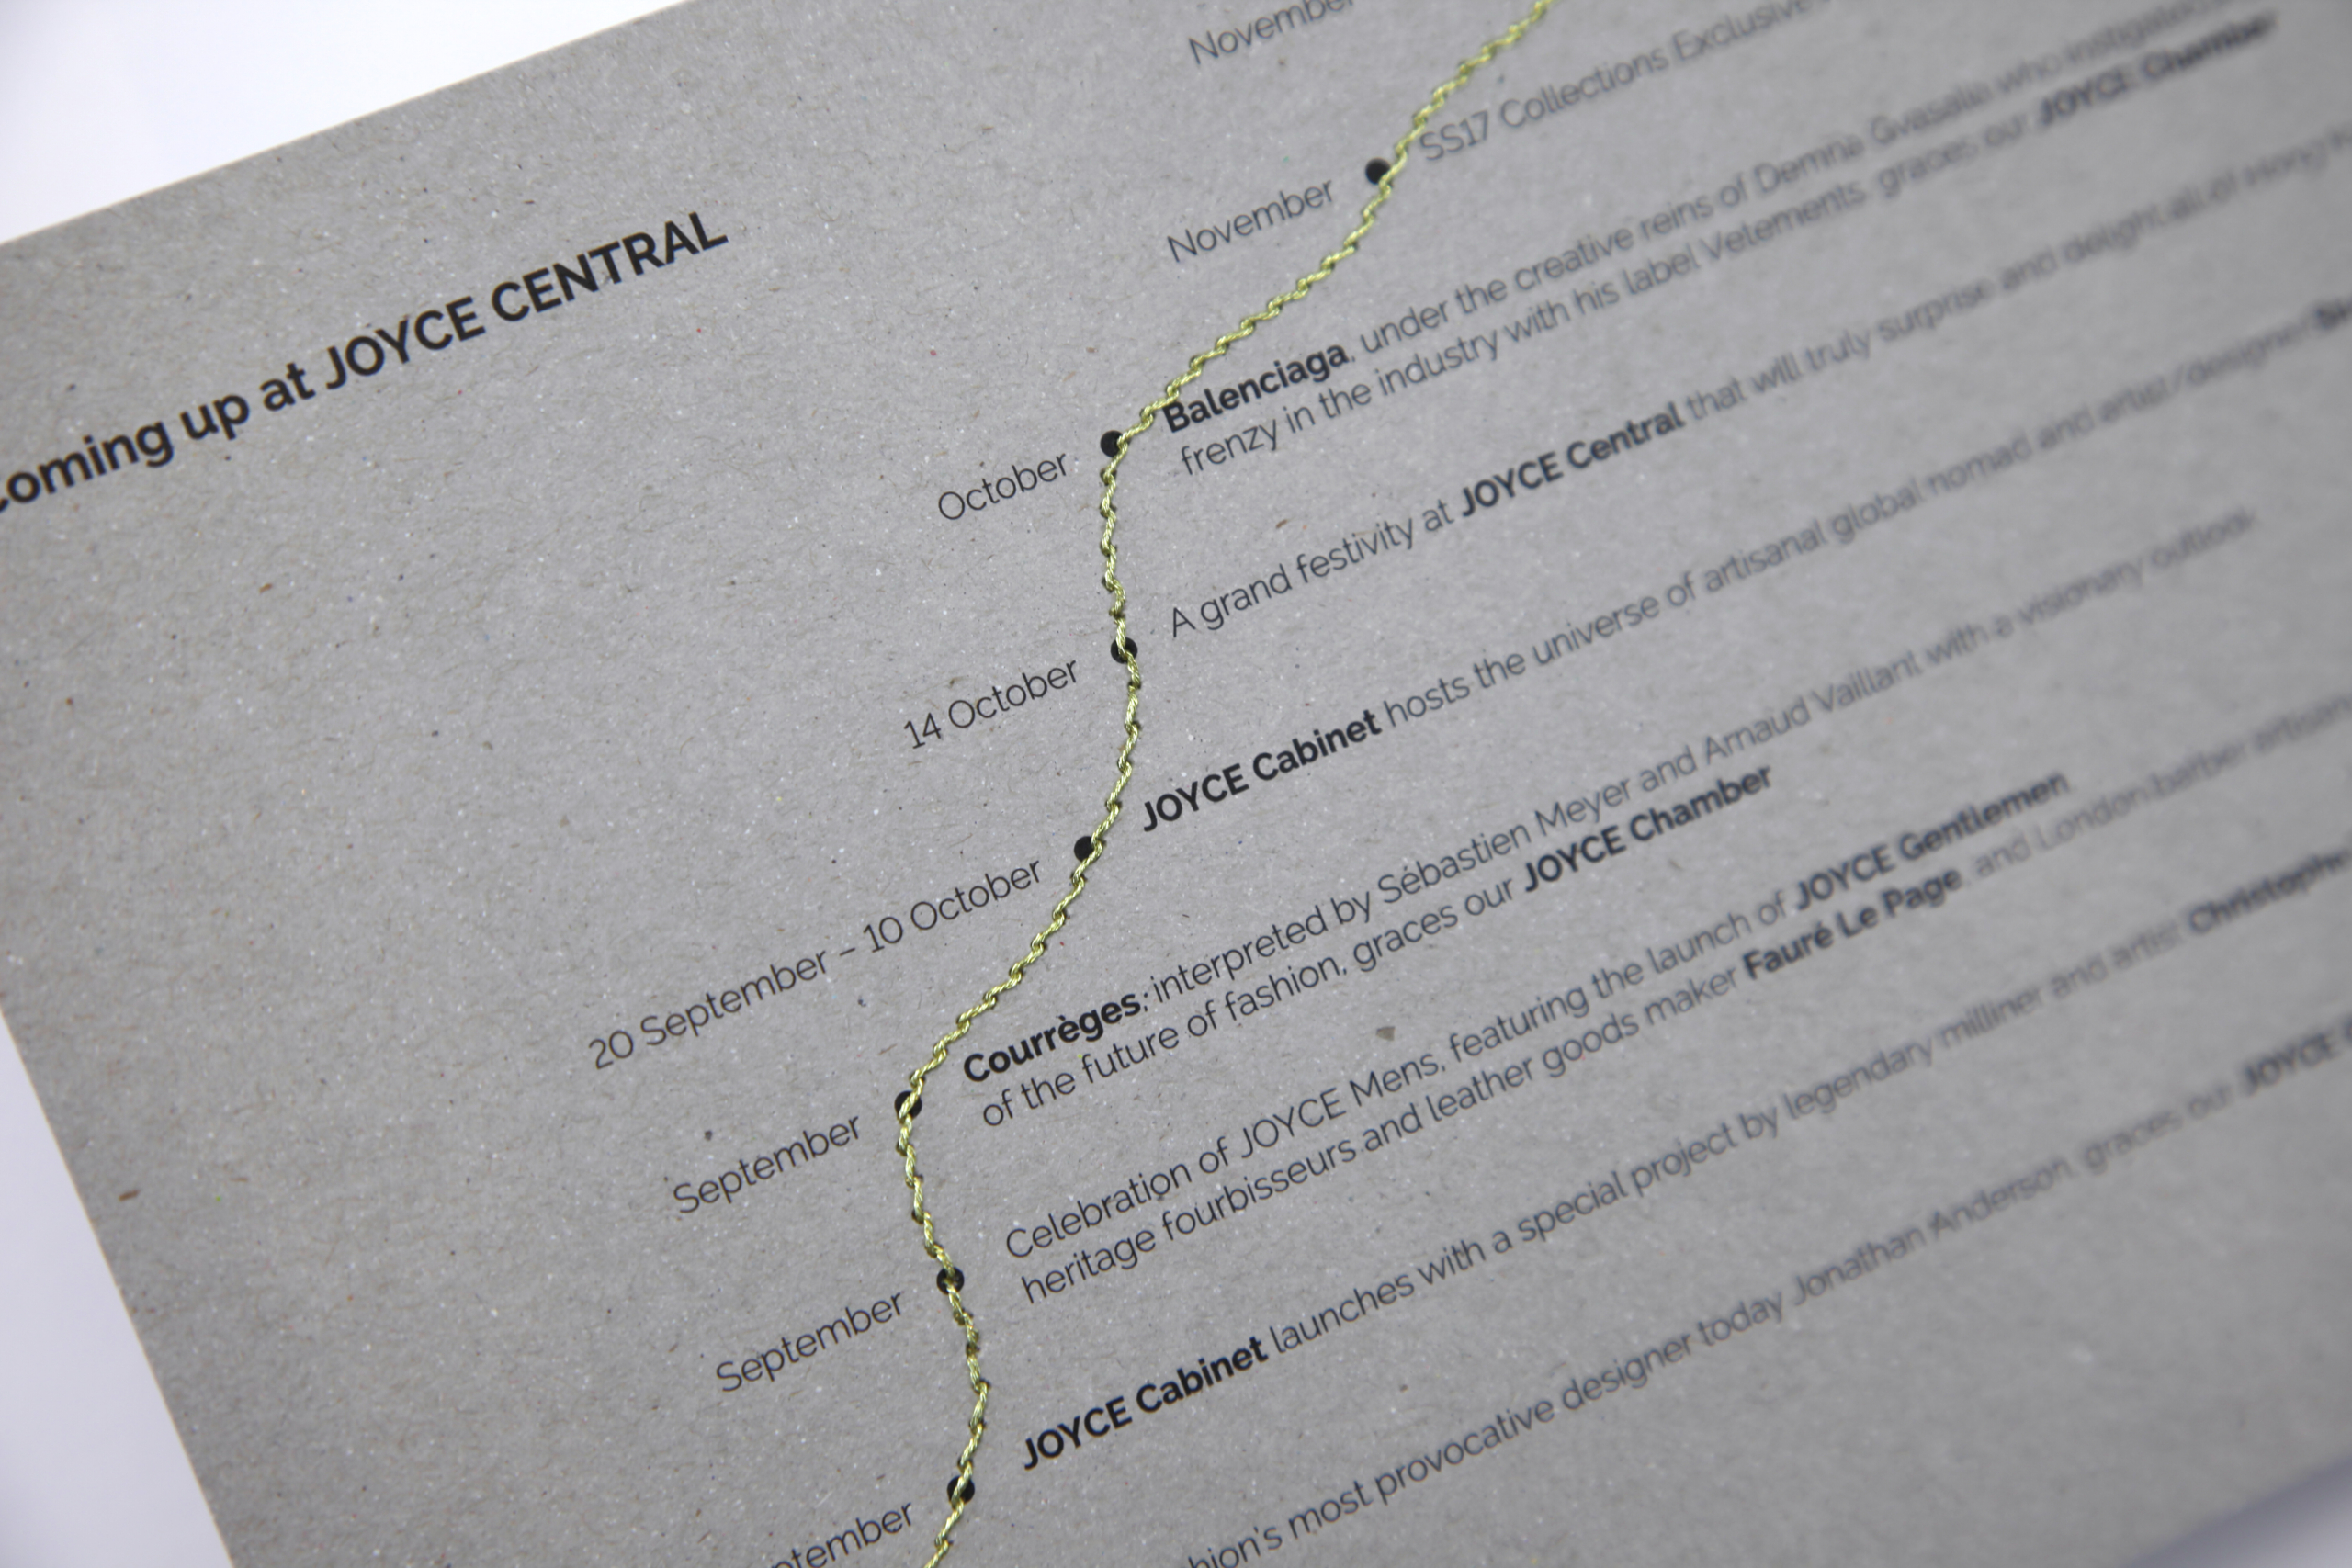 coming up at JOYCE CENTRAL
November
November
SS17 Collections Exclusive
October
Balenciaga, under the creative reins of Demna Gvasalia who instigated
frenzy in the industry with his label Vetements, graces our JOYCE Chamber
14 October
A grand festivity at JOYCE Central that will truly surprise and delight all of Hong
20 September – 10 October
JOYCE Cabinet hosts the universe of artisanal global nomad and artist/designer
September
Courrèges; interpreted by Sébastien Meyer and Arnaud Vaillant with a visionary outlook
of the future of fashion, graces our JOYCE Chamber
September
Celebration of JOYCE Mens, featuring the launch of JOYCE Gentlemen
heritage fourbisseurs and leather goods maker Fauré Le Page and London barber
ptember
JOYCE Cabinet launches with a special project by legendary milliner and artist
hion's most provocative designer today Jonathan Anderson, graces our JOYCE